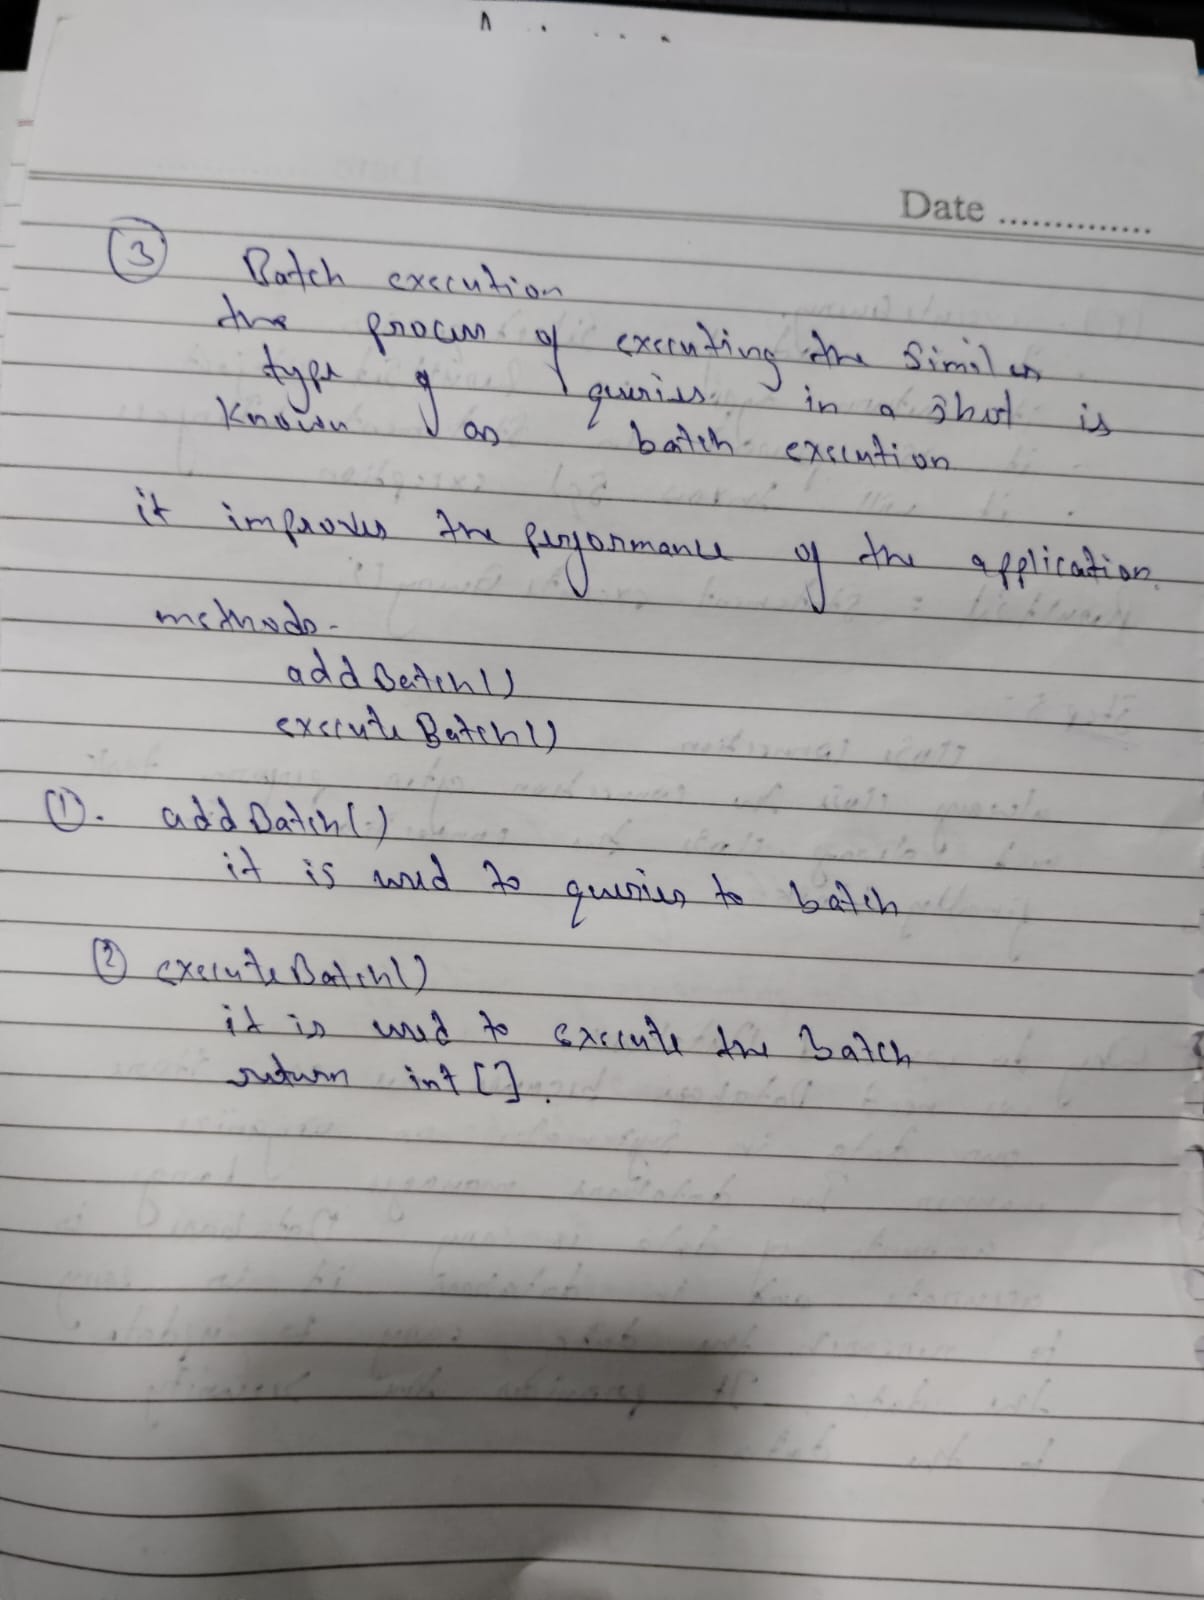 Date ..............
③ Batch execution
the process of executing the similar
type of queries in a shot is
known as batch execution
it improves the performance of the application.
methods -
addBatch()
executeBatch()
①. addBatch()
it is used to queries to batch
② executeBatch()
it is used to execute the Batch
return int [].